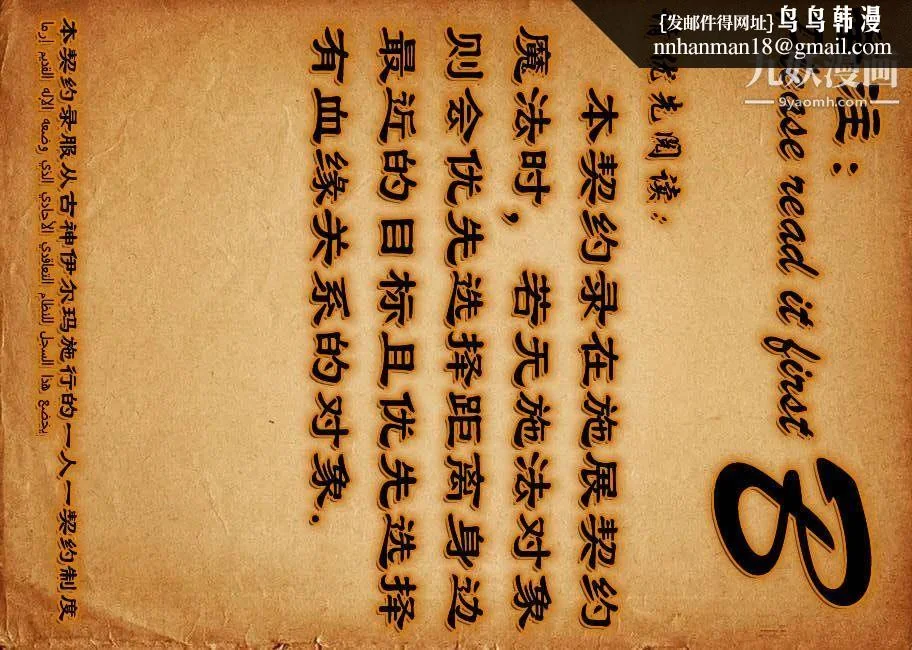 {发邮件得网址}鸟鸟韩漫
nnhanman18@gmail.com
九妖漫画
9yaomh.com
注:
read it first
8
优先阅读:
本契约录在施展契约
魔法时，若无施法对象
则会优先选择距离身边
最近的目标且优先选择
有血缘关系的对象.
本契约录服从古神伊尔玛施行的一人一契约制度
يخضع هذا السجل للنظام التعاقدي الأحادي الذي وضعه الإله القديم إرما